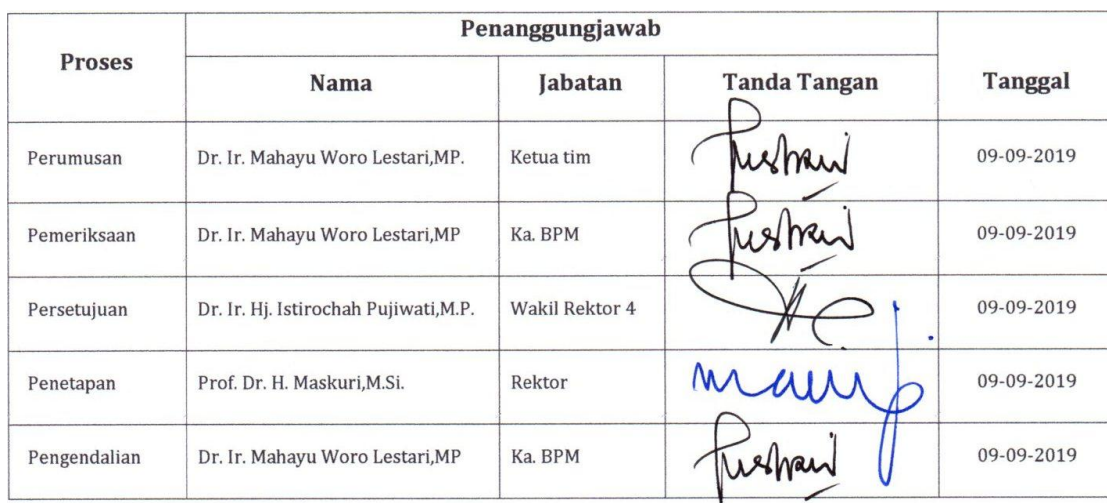 Proses
Penanggungjawab
Nama
Jabatan
Tanda Tangan
Tanggal
Perumusan
Dr. Ir. Mahayu Woro Lestari,MP.
Ketua tim
09-09-2019
Pemeriksaan
Dr. Ir. Mahayu Woro Lestari,MP
Ka. BPM
09-09-2019
Persetujuan
Dr. Ir. Hj. Istirochah Pujiwati,M.P.
Wakil Rektor 4
09-09-2019
Penetapan
Prof. Dr. H. Maskuri,M.Si.
Rektor
09-09-2019
Pengendalian
Dr. Ir. Mahayu Woro Lestari,MP
Ka. BPM
09-09-2019